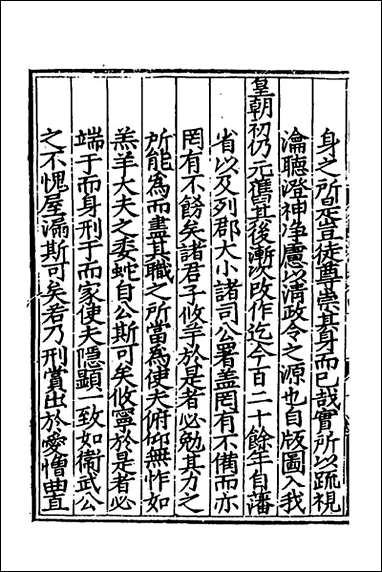 身之所是豈徒尊崇其身而已哉實所以疏視
瀹聽澄神淨慮以清政令之源也自版圖入我
皇朝初仍元舊其後漸次改作迄今百二十餘年自藩
省以及列郡大小諸司公署葢罔有不備而亦
罔有不飭矣諸君子攸芋於是者必勉其力之
所能為而盡其職之所當為使夫俯仰無怍如
羔羊大夫之委蛇自公斯可矣攸寧於是者必
端于而身刑于而家使夫隱顯一致如衞武公
之不愧屋漏斯可矣若乃刑賞出於愛憎曲直